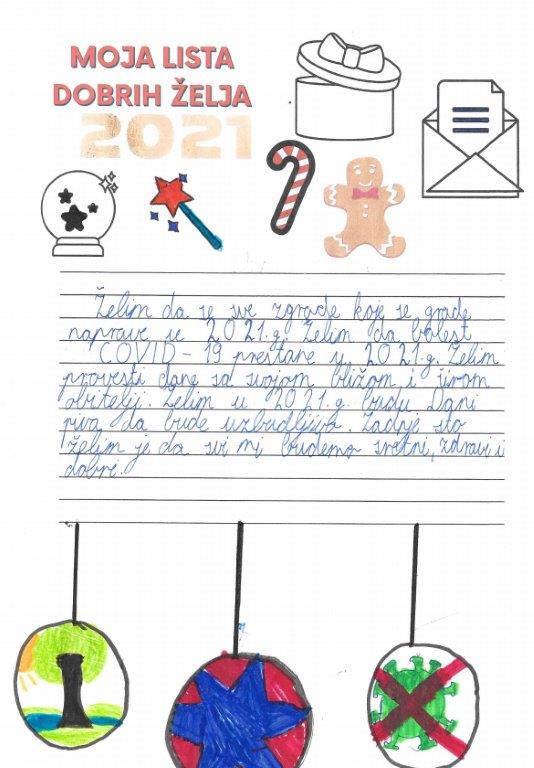 MOJA LISTA
DOBRIH ŽELJA
2021
Želim da se sve zgrade koje se grade
naprave u 2021.g. Želim da bolest
COVID-19 prestane u 2021.g. Želim
provesti dane sa svojom bližom i širom
obitelji. Želim u 2021.g. budu Dani
piva da bude uzbudljivo. Zadnje što
želim je da svi mi budemo sretni, zdravi i
dobri.